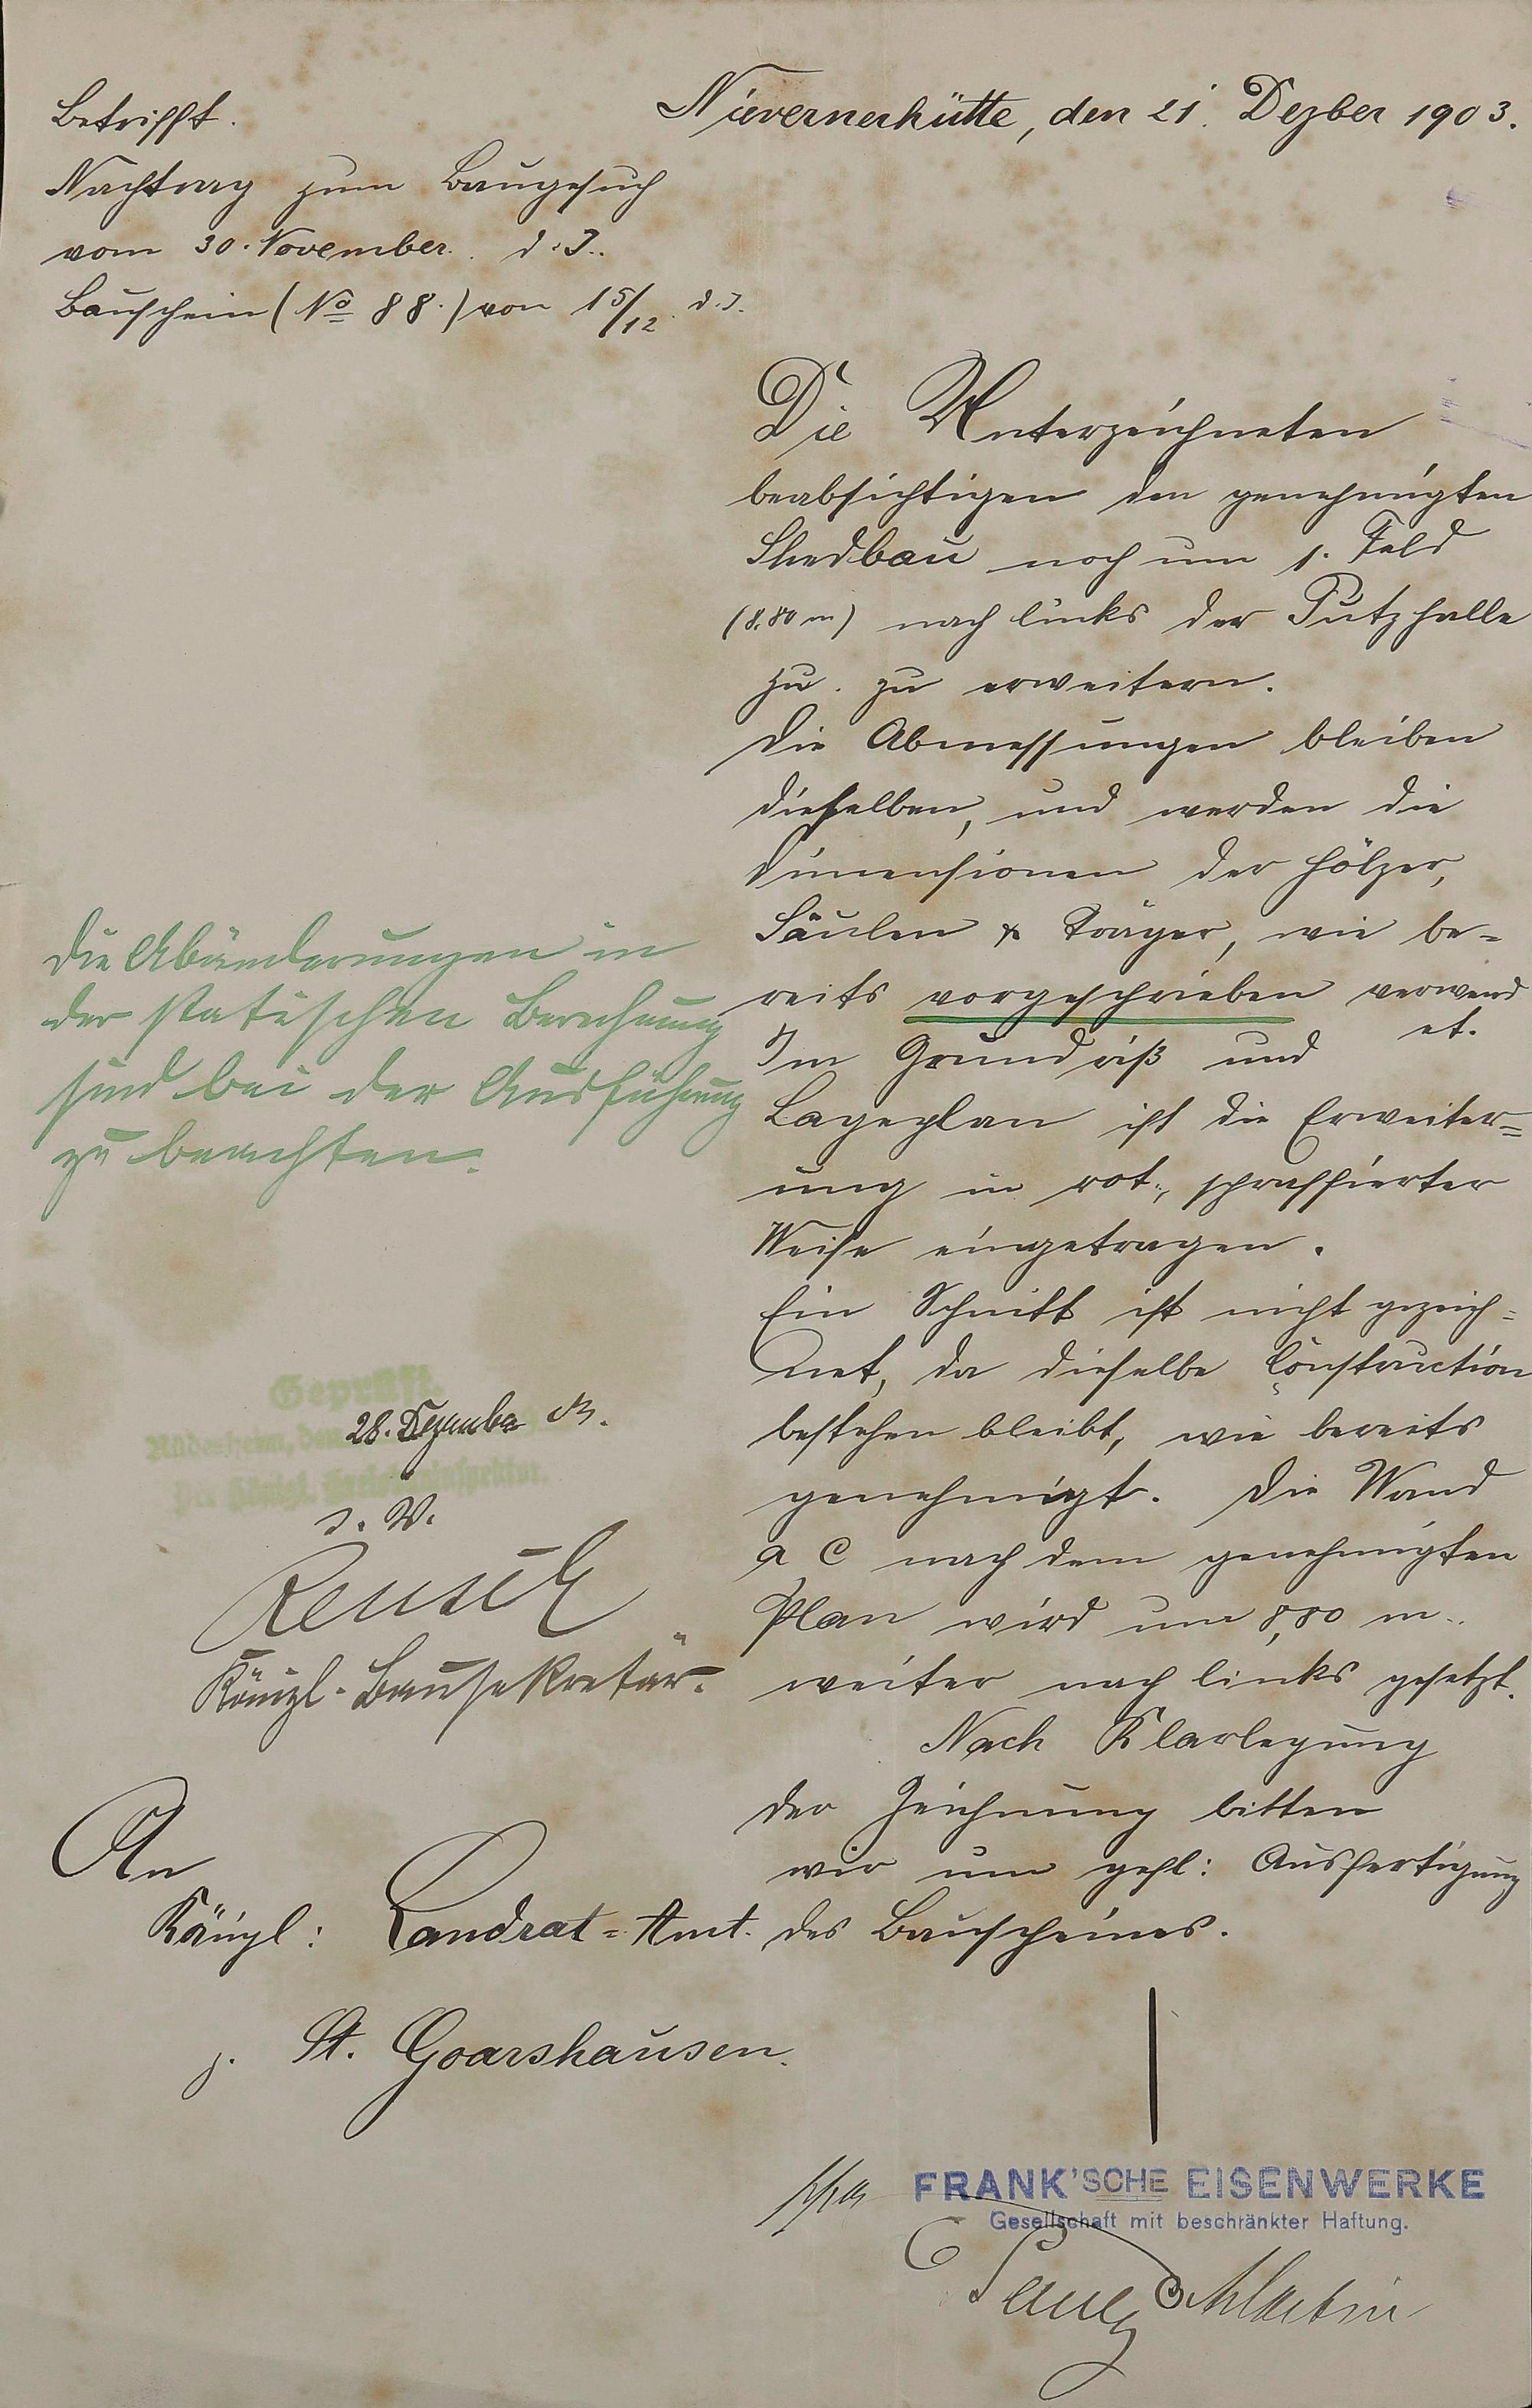 Nievernerhütte, den 21. Dezber 1903.
Betrifft.
Nachtrag zum Baugesuch
vom 30. November. d. J.
Bauschein (No 88.) von 15/12. d. J.
Die Unterzeichneten
beabsichtigen den genehmigten
Shedbau noch um 1. Feld
(8.80 m) nach links der Putzhalle
zu. zu erweitern.
Die Abmessungen bleiben
dieselben, und werden die
Dimensionen der Hölzer,
Säulen & Träger, wie be=
reits vorgeschrieben verwend
et.
Im Grundriß und
Lageplan ist die Erweiter=
ung in rot, schraffierter
Weise eingetragen.
Ein Schnitt ist nicht gezeich=
net, da dieselbe Construction
bestehen bleibt, wie bereits
genehmigt. Die Wand
a c nach dem genehmigten
Plan wird um 8,80 m
weiter nach links gesetzt.
Nach Klarlegung
der Zeichnung bitten
wir um gefl: Ausfertigung
des Bauscheines.
Die Abänderungen in
der statischen Berechnung
sind bei der Ausführung
zu beachten.
Geprüft.
Rüdesheim, den 28. Dezember 03.
Der Königl. Kreisbauinspektor.
J. V.
Reusch
Königl. Bausekretär.
An
Königl: Landrat=Amt.
z. St. Goarshausen.
ppa
FRANK'SCHE EISENWERKE
Gesellschaft mit beschränkter Haftung.